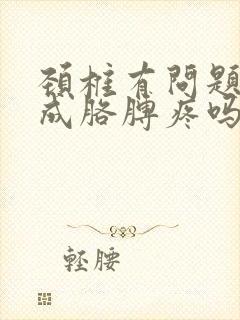 頸椎有問題
成胳膊疼嗎
輕腰